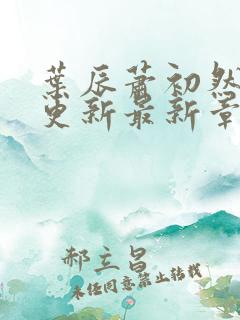 葉辰蕭初然
更新最新章
郝立昌
未经同意禁止转载